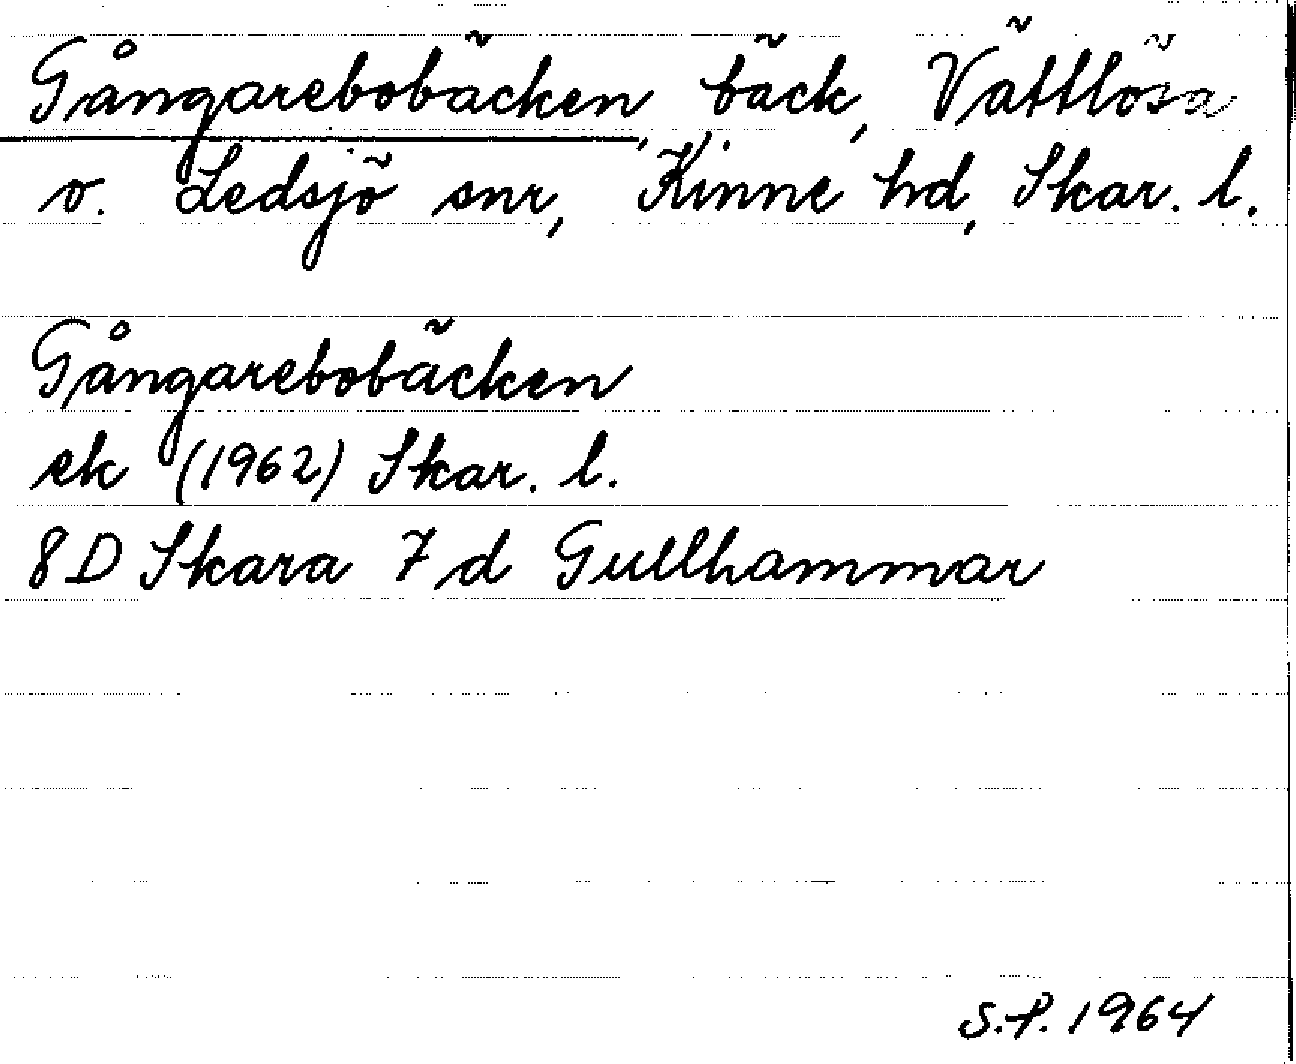 Gångarebobäcken, bäck, Vättlösa
o. Ledsjö snr, Kinne hd, Skar. l.
Gångarebobäcken
ek (1962) Skar. l.
8D Skara 7d Gullhammar
S.P. 1964